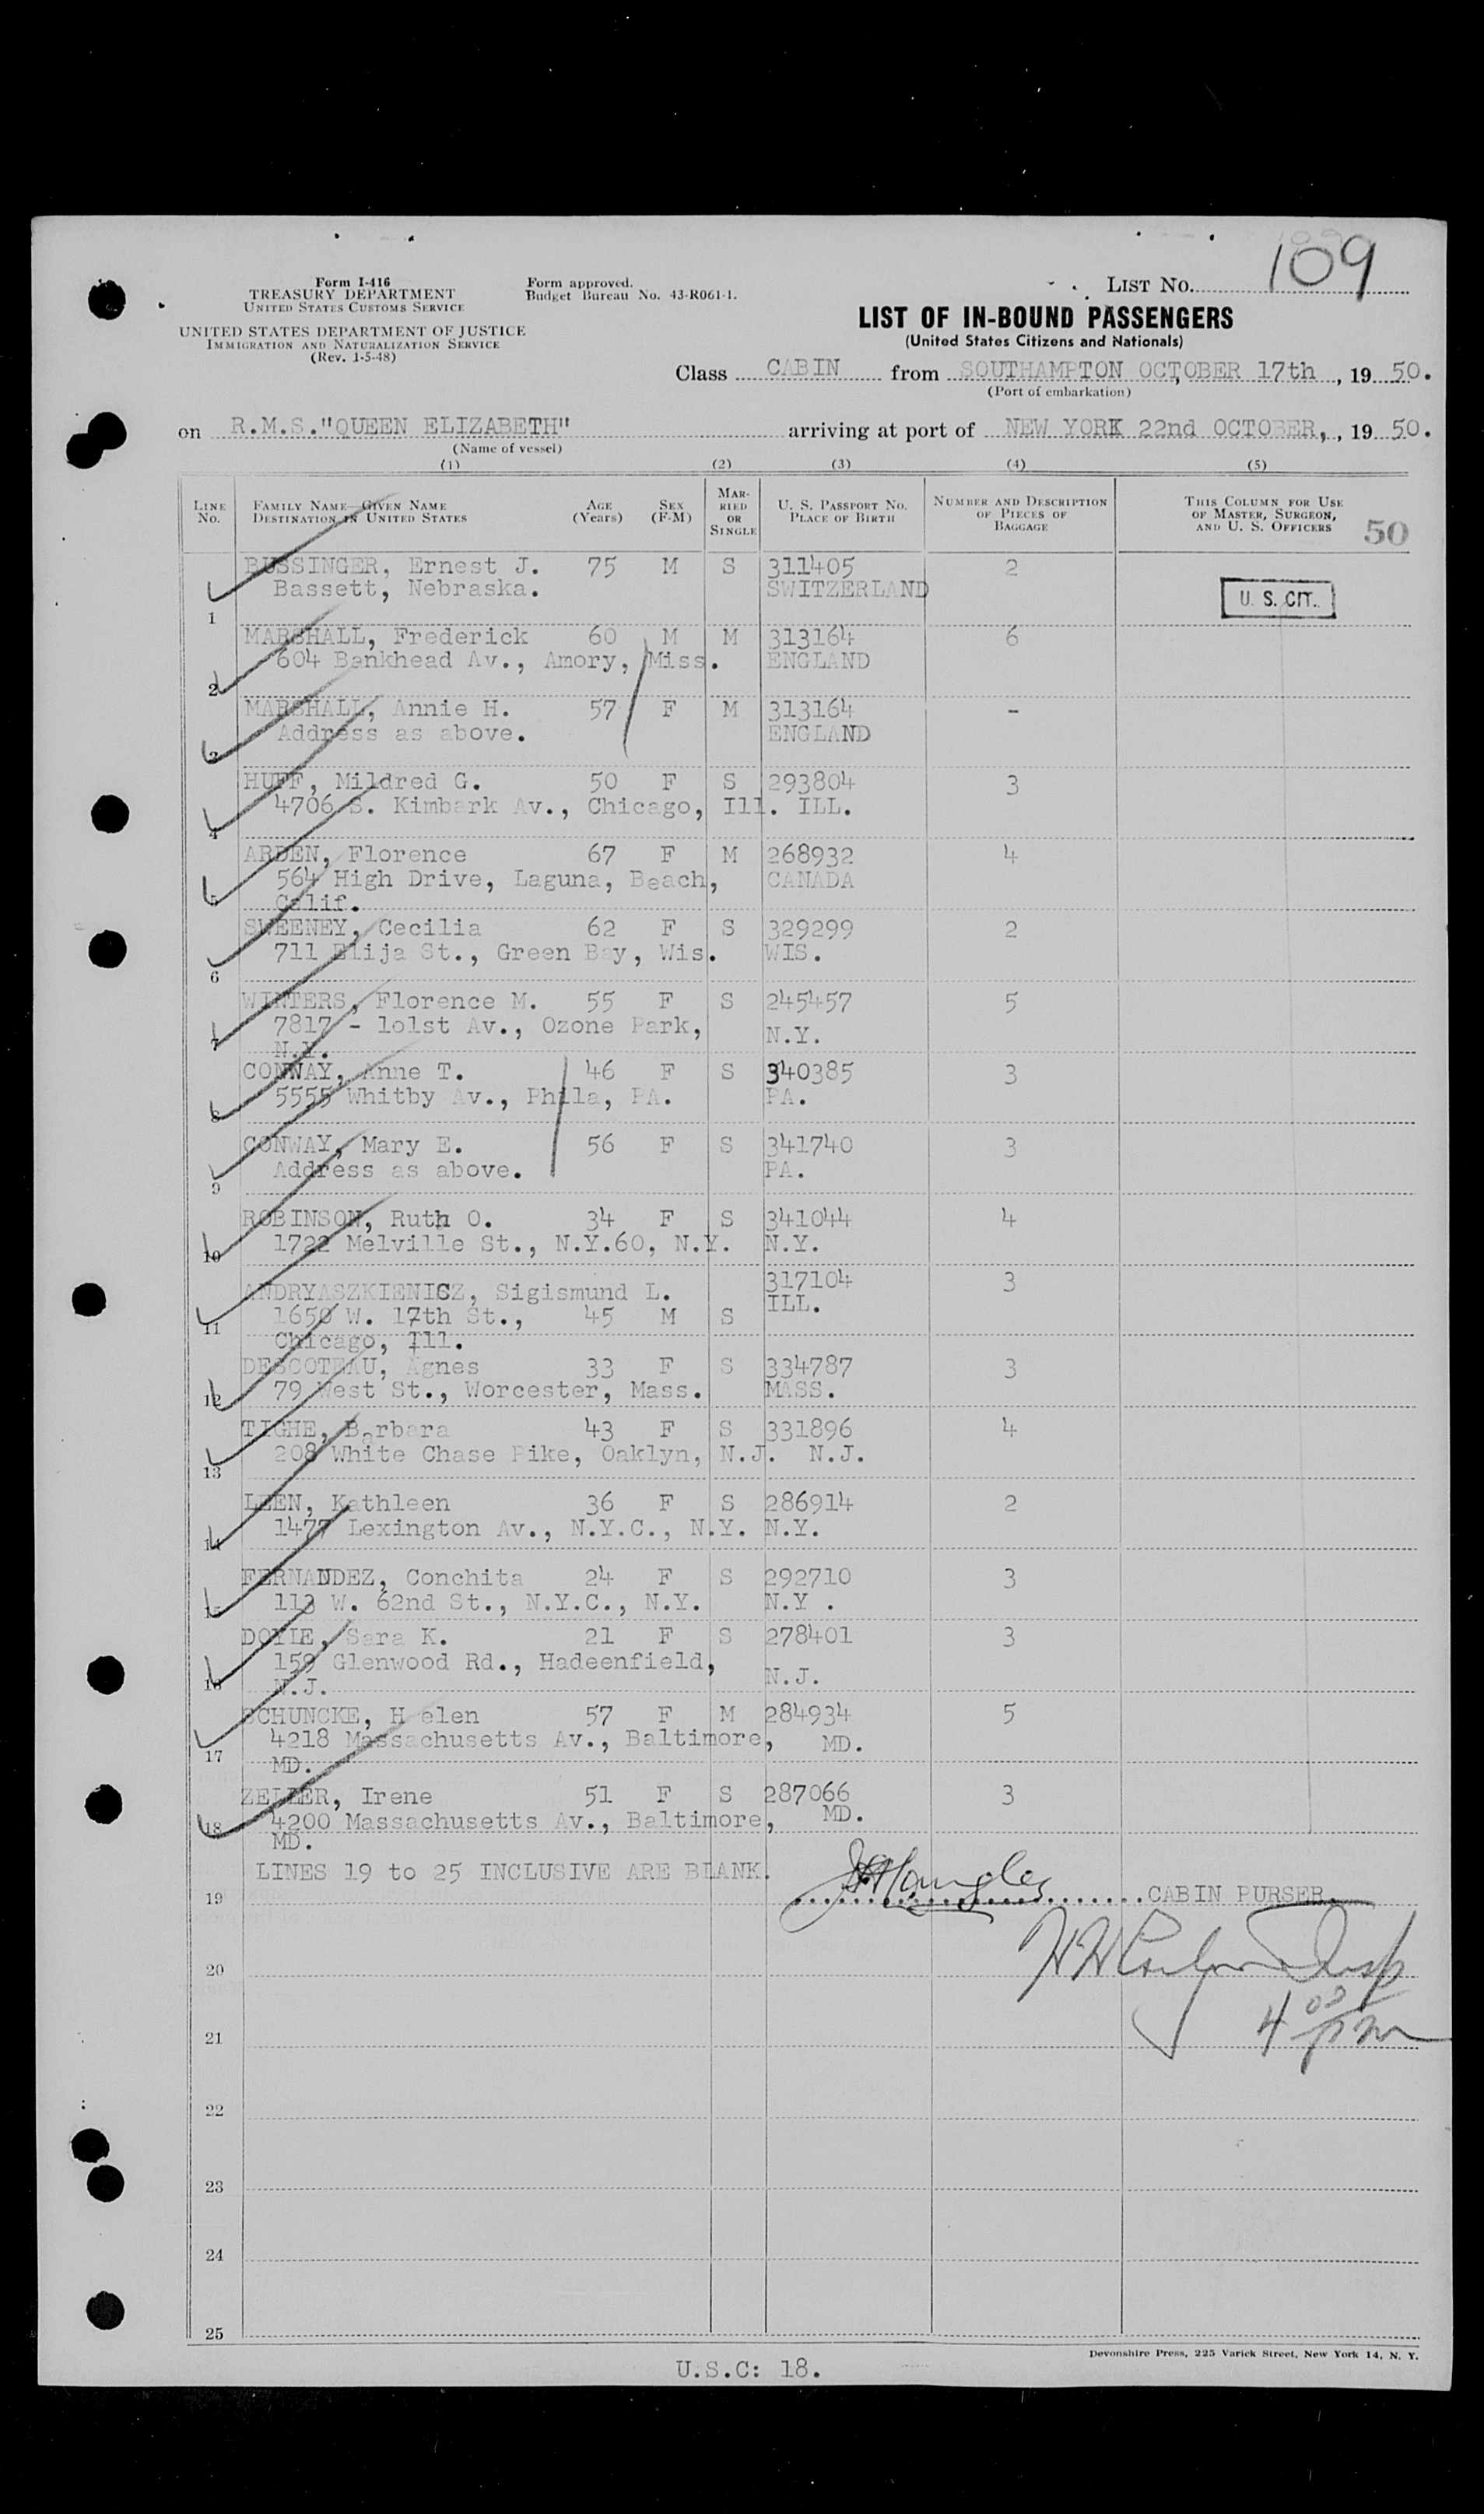 109
Form I-416
TREASURY DEPARTMENT
UNITED STATES CUSTOMS SERVICE
UNITED STATES DEPARTMENT OF JUSTICE
IMMIGRATION AND NATURALIZATION SERVICE
(Rev. 1-5-48)
Form approved.
Budget Bureau No. 43-R061-1.
LIST NO.
LIST OF IN-BOUND PASSENGERS
(United States Citizens and Nationals)
Class CABIN from SOUTHAMPTON OCTOBER 17th, 19 50.
(Port of embarkation)
on R.M.S."QUEEN ELIZABETH" arriving at port of NEW YORK 22nd OCTOBER, , 19 50.
(Name of vessel)
(1) (2) (3) (4) (5)
LINE NO. FAMILY NAME—GIVEN NAME DESTINATION IN UNITED STATES AGE (Years) SEX (F-M) MARRIED OR SINGLE U. S. PASSPORT NO. PLACE OF BIRTH NUMBER AND DESCRIPTION OF PIECES OF BAGGAGE THIS COLUMN FOR USE OF MASTER, SURGEON, AND U. S. OFFICERS 50
BUSSINGER, Ernest J. 75 M S 311405 2
Bassett, Nebraska. SWITZERLAND U. S. CIT.
1
MARSHALL, Frederick 60 M M 313164 6
604 Bankhead Av., Amory, Miss. ENGLAND
2
MARSHALL, Annie H. 57 F M 313164 -
Address as above. ENGLAND
3
HUFF, Mildred G. 50 F S 293804 3
4706 S. Kimbark Av., Chicago, Ill. ILL.
4
ARDEN, Florence 67 F M 268932 4
564 High Drive, Laguna, Beach, CANADA
5 Calif.
SWEENEY, Cecilia 62 F S 329299 2
711 Elija St., Green Bay, Wis. WIS.
6
WINTERS, Florence M. 55 F S 245457 5
7817 - 101st Av., Ozone Park, N.Y.
7 N.Y.
CONWAY, Anne T. 46 F S 340385 3
5555 Whitby Av., Phila, PA. PA.
8
CONWAY, Mary E. 56 F S 341740 3
Address as above. PA.
9
ROBINSON, Ruth O. 34 F S 341044 4
1722 Melville St., N.Y.60, N.Y. N.Y.
10
ANDRYASZKIENICZ, Sigismund L. 317104 3
1650 W. 17th St., 45 M S ILL.
11 Chicago, Ill.
DESCOTEAU, Agnes 33 F S 334787 3
79 West St., Worcester, Mass. MASS.
12
TIGHE, Barbara 43 F S 331896 4
208 White Chase Pike, Oaklyn, N.J. N.J.
13
LEEN, Kathleen 36 F S 286914 2
1477 Lexington Av., N.Y.C., N.Y. N.Y.
14
FERNANDEZ, Conchita 24 F S 292710 3
113 W. 62nd St., N.Y.C., N.Y. N.Y .
15
DOYLE, Sara K. 21 F S 278401 3
159 Glenwood Rd., Hadeenfield, N.J.
16 N.J.
SCHUNCKE, H elen 57 F M 284934 5
4218 Massachusetts Av., Baltimore, MD.
17 MD.
ZELLER, Irene 51 F S 287066 3
4200 Massachusetts Av., Baltimore, MD.
18 MD.
LINES 19 to 25 INCLUSIVE ARE BLANK.
19 CABIN PURSER.
20
4 00 pm
21
22
23
24
25
Devonshire Press, 225 Varick Street, New York 14, N. Y.
U.S.C: 18.